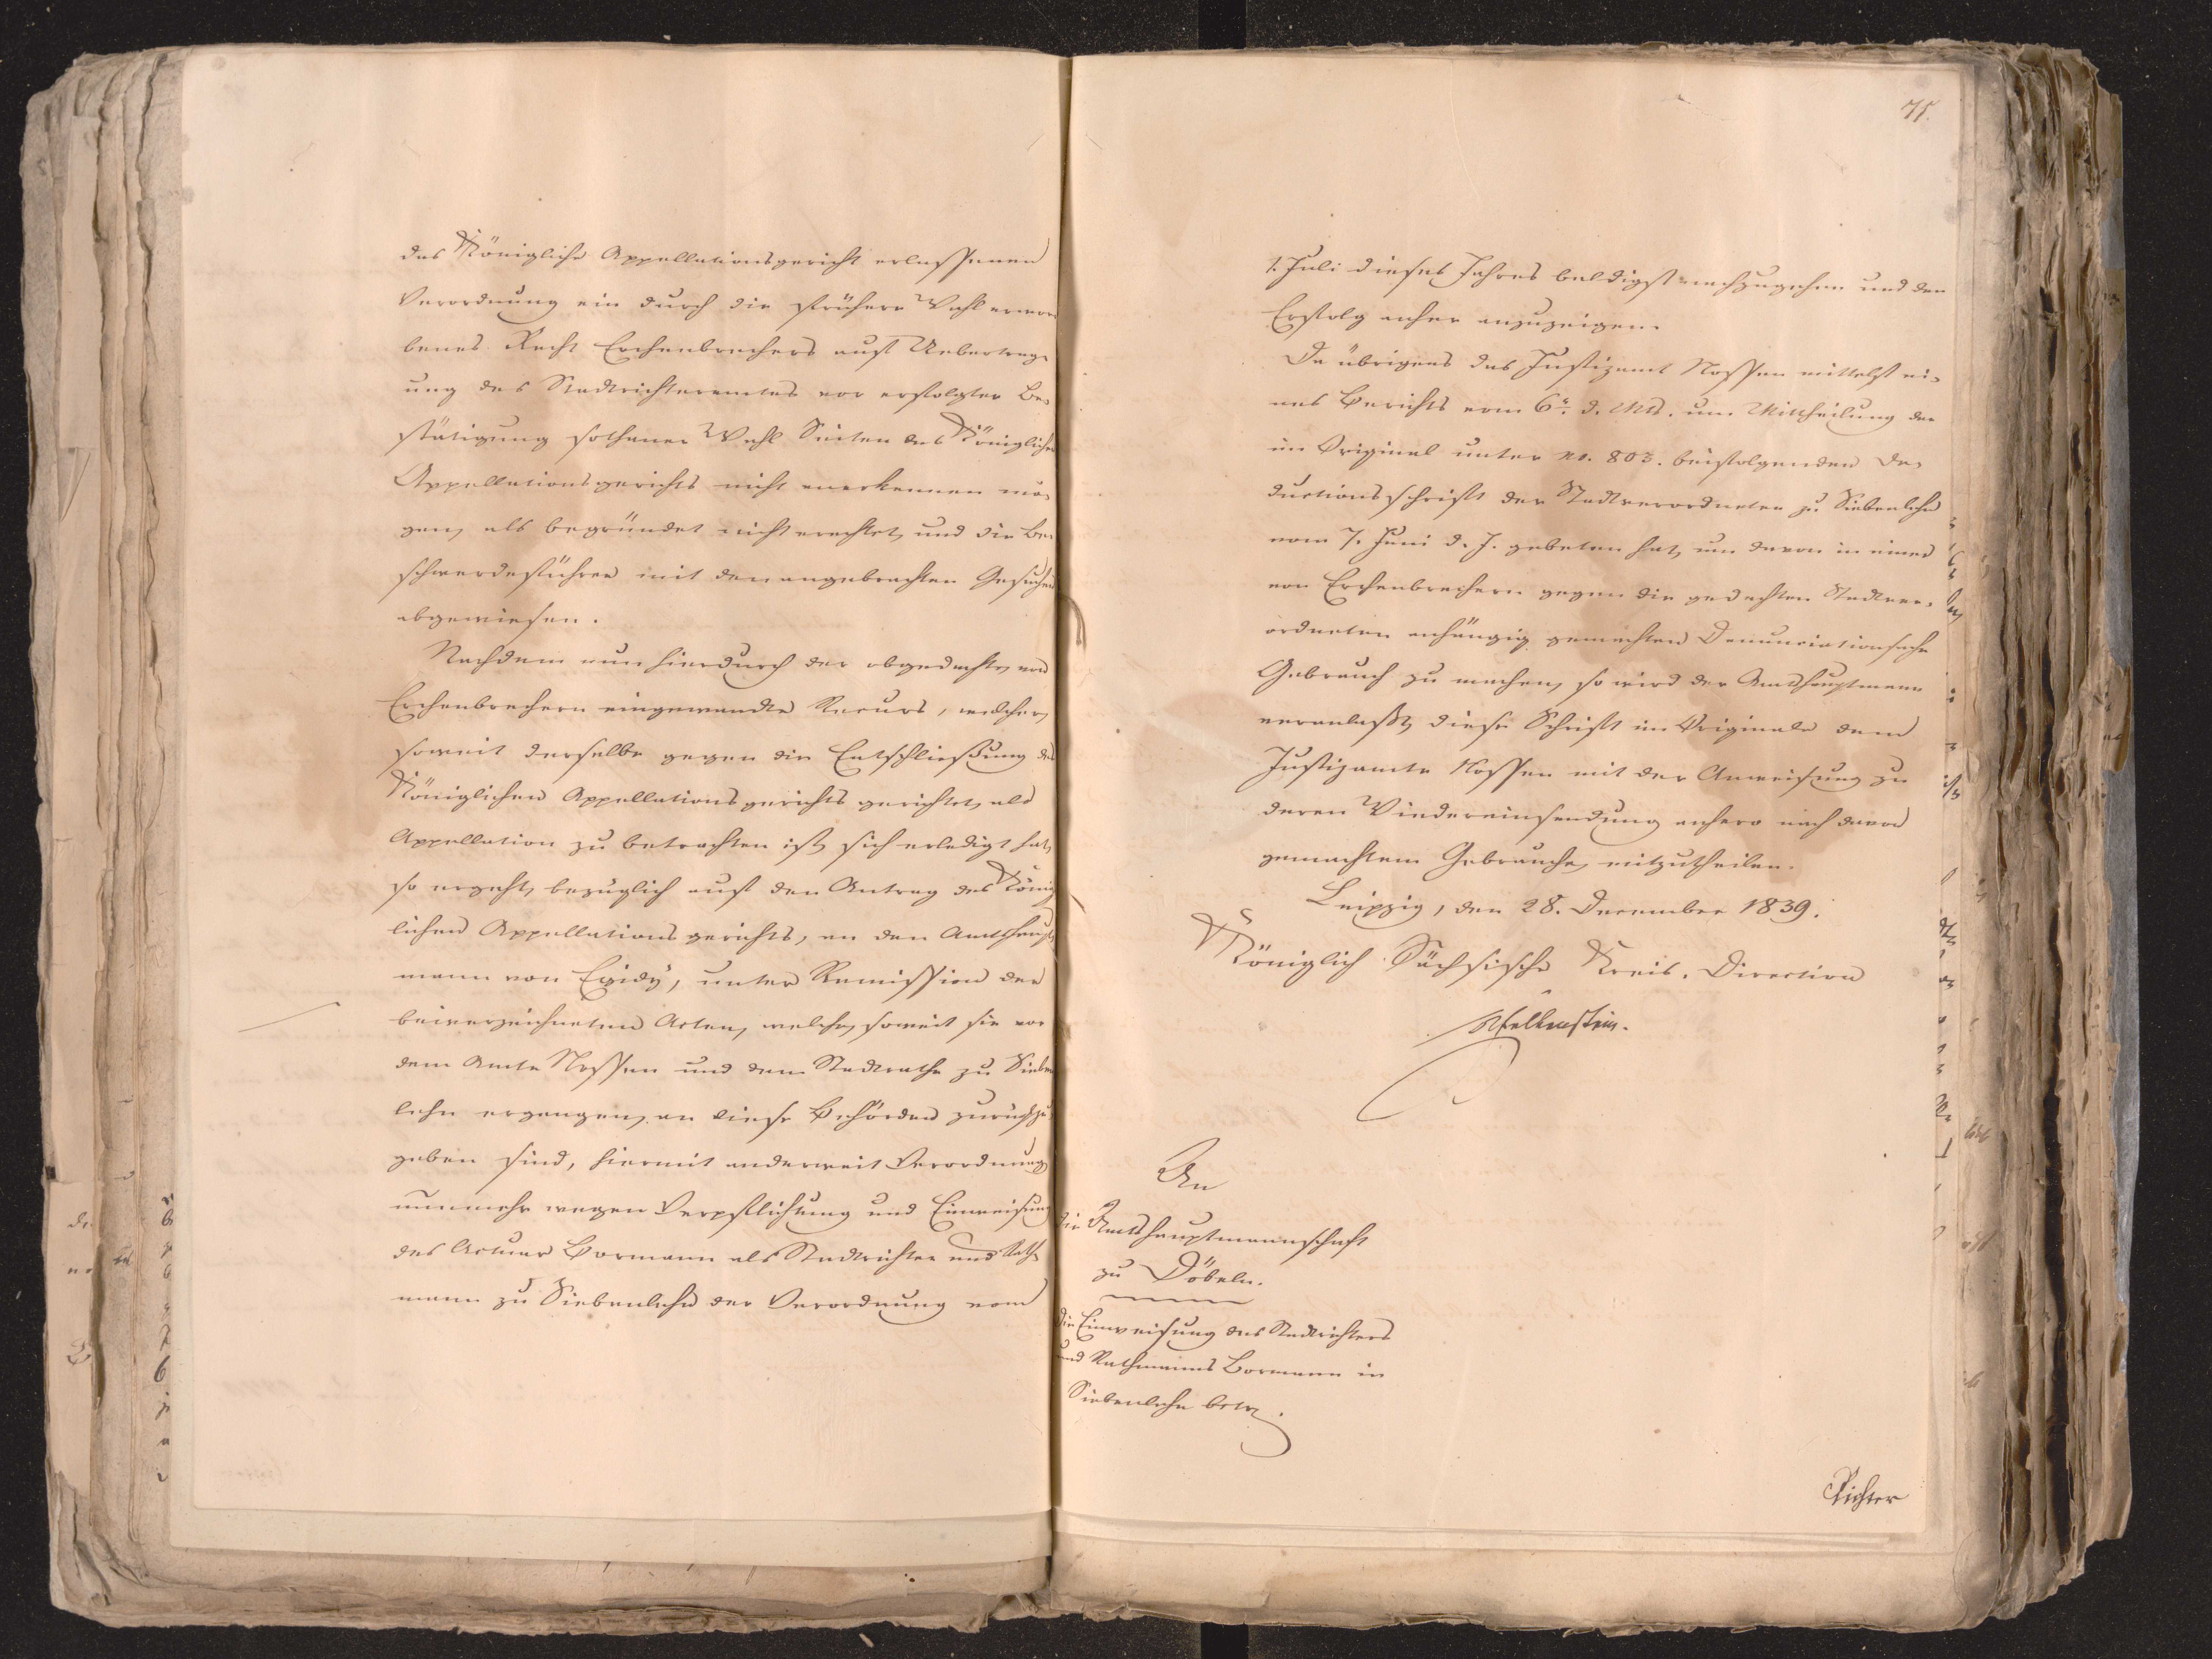 das Königliche Appellationsgericht erlassenen
Verordnung ein durch die frühere Wahl erwor-
benes Recht Erchenbrechers auf Uebertrag-
ung des Stadtrichteramtes vor erfolgter Be-
stätigung sothaner Wahl Seiten des Königlichen
Appellationsgerichts nicht anerkennen mö-
gen, als begründet nicht erachtet, und die Be-
schwerdeführer mit den angebrachten Gesuchen
abgewiesen.
Nachdem nun hierdurch der obgedachte, von
Erchenbrechern eingewandte Recurs, welcher,
soweit derselbe gegen die Entschließung des
Königlichen Appellationsgerichts gerichtet, als
Appellation zu betrachten ist, sich erledigt hat,
so ergeht, bezüglich auf den Antrag des König-
lichen Appellationsgerichts, an den Amtshaupt-
mann von Egidy, unter Remission der
beiverzeichneten Acten, welche, soweit sie vor
dem Amte Nossen und dem Stadtrathe zu Sieben-
lehn ergangen, an diese Behörden zurückzu-
geben sind, hiermit anderweit Verordnung,
nunmehr wegen Verpflichtung und Einweisung
des Actuar Bormann als Stadtrichter und Rath-
mann zu Siebenlehn der Verordnung vom
75.
1. Juli dieses Jahres baldigst nachzugehen und den
Erfolg anher anzuzeigen.
Da übrigens das Justizamt Nossen mittelst ei-
nes Berichts vom 6. d. Mts. um Mittheilung der
im Original unter no. 803. beifolgenden De-
ductionsschrift der Stadtverordneten zu Siebenlehn
vom 7. Juni d. J. gebeten hat, um davon in einer
von Erchenbrechern gegen die gedachten Stadtver-
ordneten anhängig gemachten Denunciationsache
Gebrauch zu machen, so wird der Amtshauptmann
veranlaßt, diese Schrift im Originale dem
Justizamte Nossen mit der Anweisung zu
deren Wiedereinsendung anhero nach davon
gemachtem Gebrauche, mitzutheilen.
Leipzig, den 28. December 1839.
Königlich Sächsische Kreis-Direction
An
die Amtshauptmannschaft
zu Döbeln.
die Einweisung des Stadtrichters
und Rathmanns Bormann in
Siebenlehn betr.
Richter